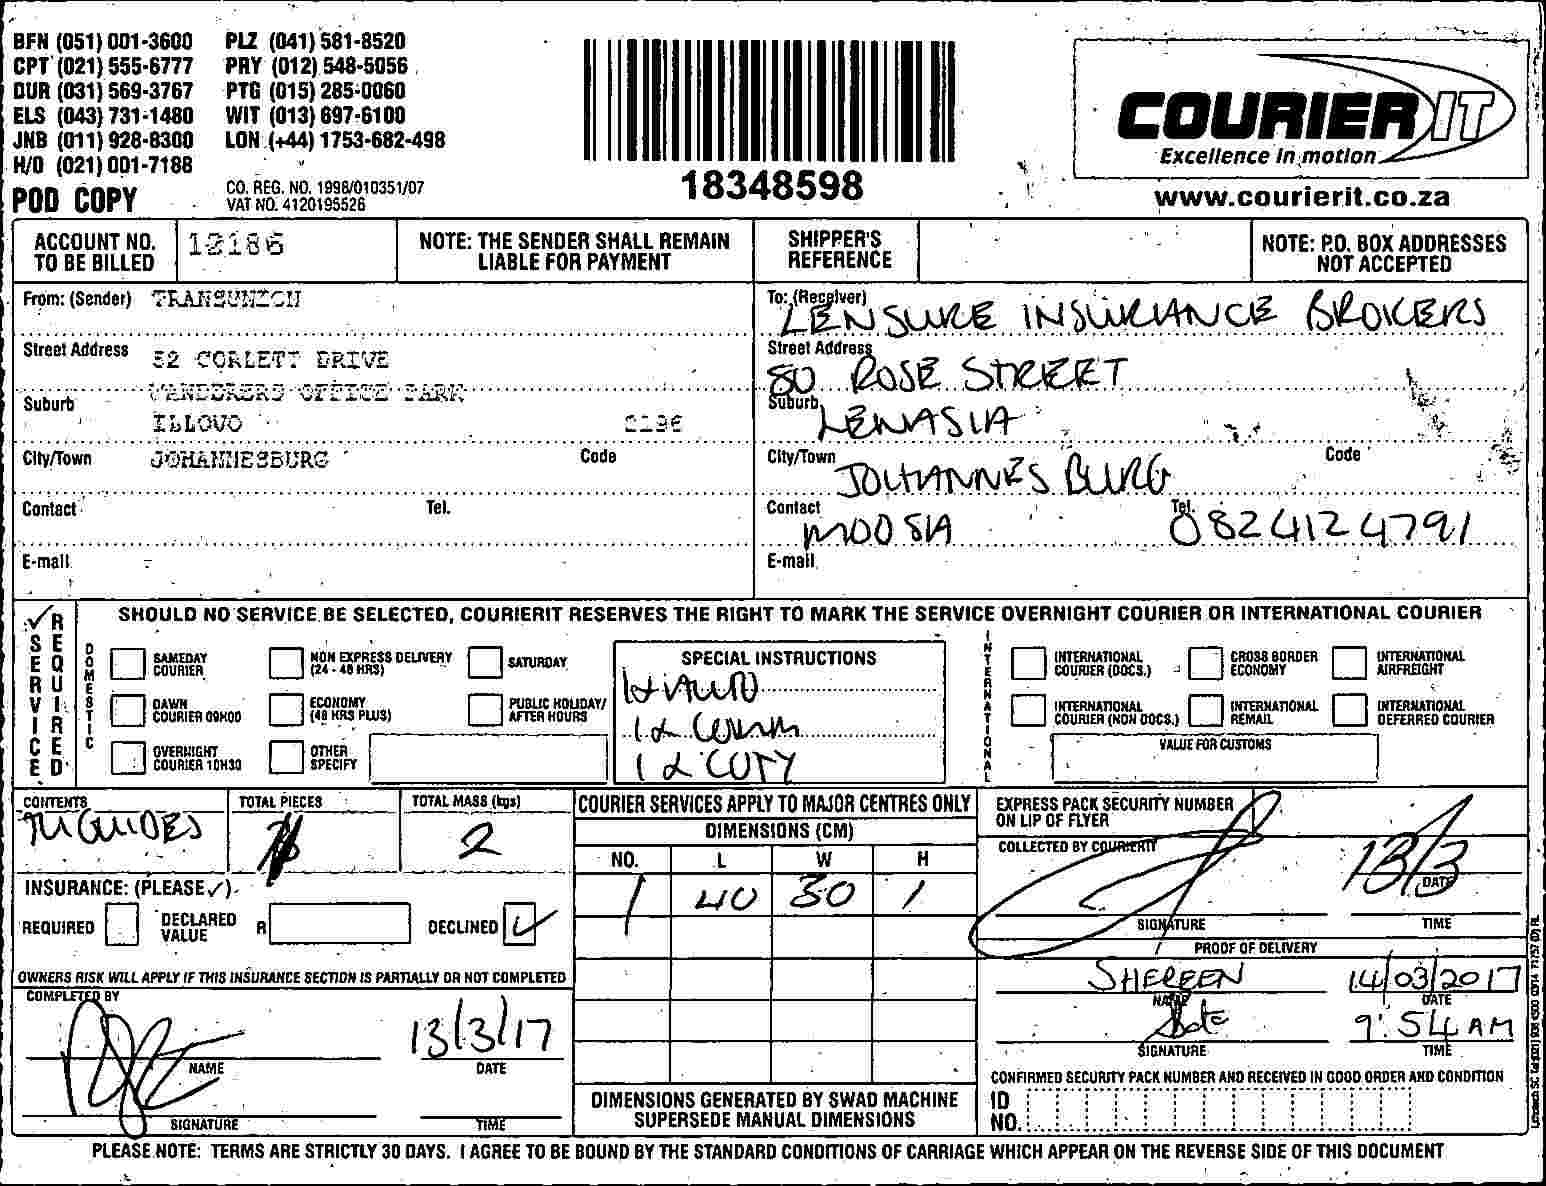 BFN (051) 001-3600 PLZ (041) 581-8520
CPT (021) 555-6777 PRY (012) 548-5056
DUR (031) 569-3767 PTG (015) 285-0060
ELS (043) 731-1480 WIT (013) 697-6100
JNB (011) 928-8300 LON (+44) 1753-682-498
H/O (021) 001-7188
POD COPY
CO. REG. NO. 1998/010351/07
VAT NO. 4120195526
18348598
COURIER IT
Excellence in motion
www.courierit.co.za
ACCOUNT NO. TO BE BILLED 12186
NOTE: THE SENDER SHALL REMAIN LIABLE FOR PAYMENT
SHIPPER'S REFERENCE
NOTE: P.O. BOX ADDRESSES NOT ACCEPTED
From: (Sender) TRANSUNION
Street Address 52 CORLETT DRIVE
WANDERERS OFFICE PARK
Suburb ILLOVO 2196
City/Town JOHANNESBURG Code
Contact Tel.
E-mail
To: (Receiver) LENSURE INSURANCE BROKERS
Street Address 80 ROSE STREET
Suburb LENASIA
City/Town JOHANNESBURG Code
Contact MOOSA Tel. 0824124791
E-mail
✓ SERVICE REQUIRED
SHOULD NO SERVICE BE SELECTED, COURIERIT RESERVES THE RIGHT TO MARK THE SERVICE OVERNIGHT COURIER OR INTERNATIONAL COURIER
DOMESTIC
SAMEDAY COURIER
NON EXPRESS DELIVERY (24 - 48 HRS)
SATURDAY
DAWN COURIER 09H00
ECONOMY (48 HRS PLUS)
PUBLIC HOLIDAY/ AFTER HOURS
OVERNIGHT COURIER 10H30
OTHER SPECIFY
SPECIAL INSTRUCTIONS
COMM
INTERNATIONAL
INTERNATIONAL COURIER (DOCS.)
CROSS BORDER ECONOMY
INTERNATIONAL AIRFREIGHT
INTERNATIONAL COURIER (NON DOCS.)
INTERNATIONAL REMAIL
INTERNATIONAL DEFERRED COURIER
VALUE FOR CUSTOMS
CONTENTS GUIDES
TOTAL PIECES
TOTAL MASS (kgs) 2
INSURANCE: (PLEASE ✓)
REQUIRED DECLARED VALUE R DECLINED ✓
OWNERS RISK WILL APPLY IF THIS INSURANCE SECTION IS PARTIALLY OR NOT COMPLETED
COMPLETED BY
NAME 13/3/17 DATE
SIGNATURE TIME
COURIER SERVICES APPLY TO MAJOR CENTRES ONLY
DIMENSIONS (CM)
NO. L W H
1 40 30 1
DIMENSIONS GENERATED BY SWAD MACHINE SUPERSEDE MANUAL DIMENSIONS
EXPRESS PACK SECURITY NUMBER ON LIP OF FLYER
COLLECTED BY COURIERIT 13/3 DATE
SIGNATURE TIME
PROOF OF DELIVERY
SHEREEN 14/03/2017
NAME DATE
9:54 AM
SIGNATURE TIME
CONFIRMED SECURITY PACK NUMBER AND RECEIVED IN GOOD ORDER AND CONDITION
ID NO.
PLEASE NOTE: TERMS ARE STRICTLY 30 DAYS. I AGREE TO BE BOUND BY THE STANDARD CONDITIONS OF CARRIAGE WHICH APPEAR ON THE REVERSE SIDE OF THIS DOCUMENT